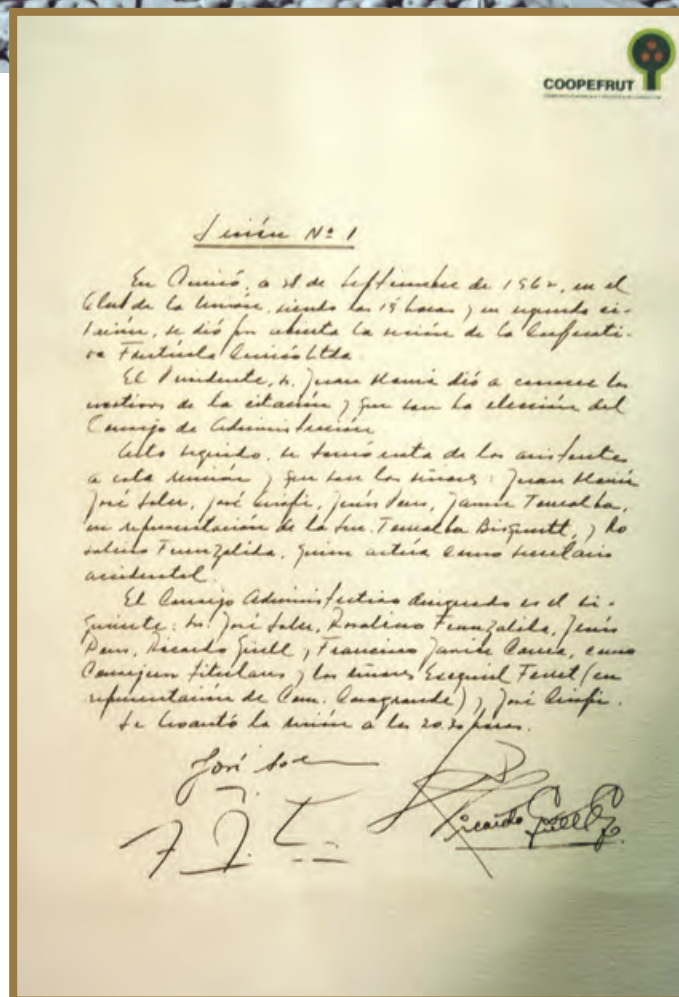 COOPEFRUT
Sesión Nº 1
En Curicó, a 28 de Septiembre de 1962, en el
Club de la Unión, siendo las 19 horas y en segunda ci-
tación, se dió por abierta la sesión de la Coopeati-
va Frutícola Curicó Ltda.
El Presidente, Sr. Juan María dió a conocer los
motivos de la citación y que son la elección del
Consejo de Administración
Acto seguido, se tomó nota de los asistentes
a esta reunión y que son los señores: Juan María
José Soler, José, Jesús Pons, Jaime Torrealba,
en representación de la Suc. Torrealba Bisquertt, y Ro
salino Fuenzalida, quien actúa como secretario
accidental.
El Consejo Administrativo designado es el si-
guiente: Sr. José Soler, Rosalino Fuenzalida, Jesús
Pons, Ricardo Güell y Francisco Javier Correa, como
Consejeros titulares y los señores Exequiel Ferret (en
representación de Com. Casagrande) y José.
Se levantó la sesión a las 20.30 horas.
José Soler
Ricardo Güell